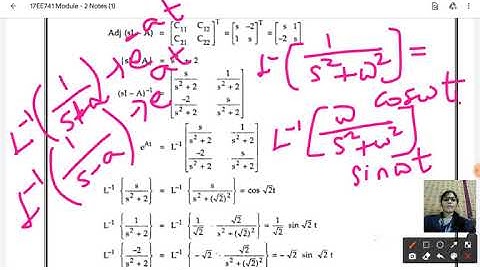 17EE741 Module - 2 Notes (1)
Adj (sI – A) = [C₁₁ C₁₂; C₂₁ C₂₂]ᵀ = [s –2; 1 s]ᵀ = [s 1; –2 s]
(sI – A)⁻¹ = [s/(s² + 2) 1/(s² + 2); –2/(s² + 2) s/(s² + 2)]
e^At = L⁻¹ [s/(s² + 2) 1/(s² + 2); –2/(s² + 2) s/(s² + 2)]
L⁻¹ {s/(s² + 2)} = L⁻¹ {s/(s² + (√2)²)} = cos √2 t
L⁻¹ {1/(s² + 2)} = L⁻¹ {1/√2 · √2/(s² + (√2)²)} = 1/√2 sin √2 t
L⁻¹ {–2/(s² + 2)} = L⁻¹ {–√2 · √2/(s² + (√2)²)} = –√2 sin √2 t
L⁻¹ (1/(s²+ω²)) =
cosωt
L⁻¹ [ω/(s²+ω²)]
sinωt
L⁻¹ (1/(s-a)) → e^at